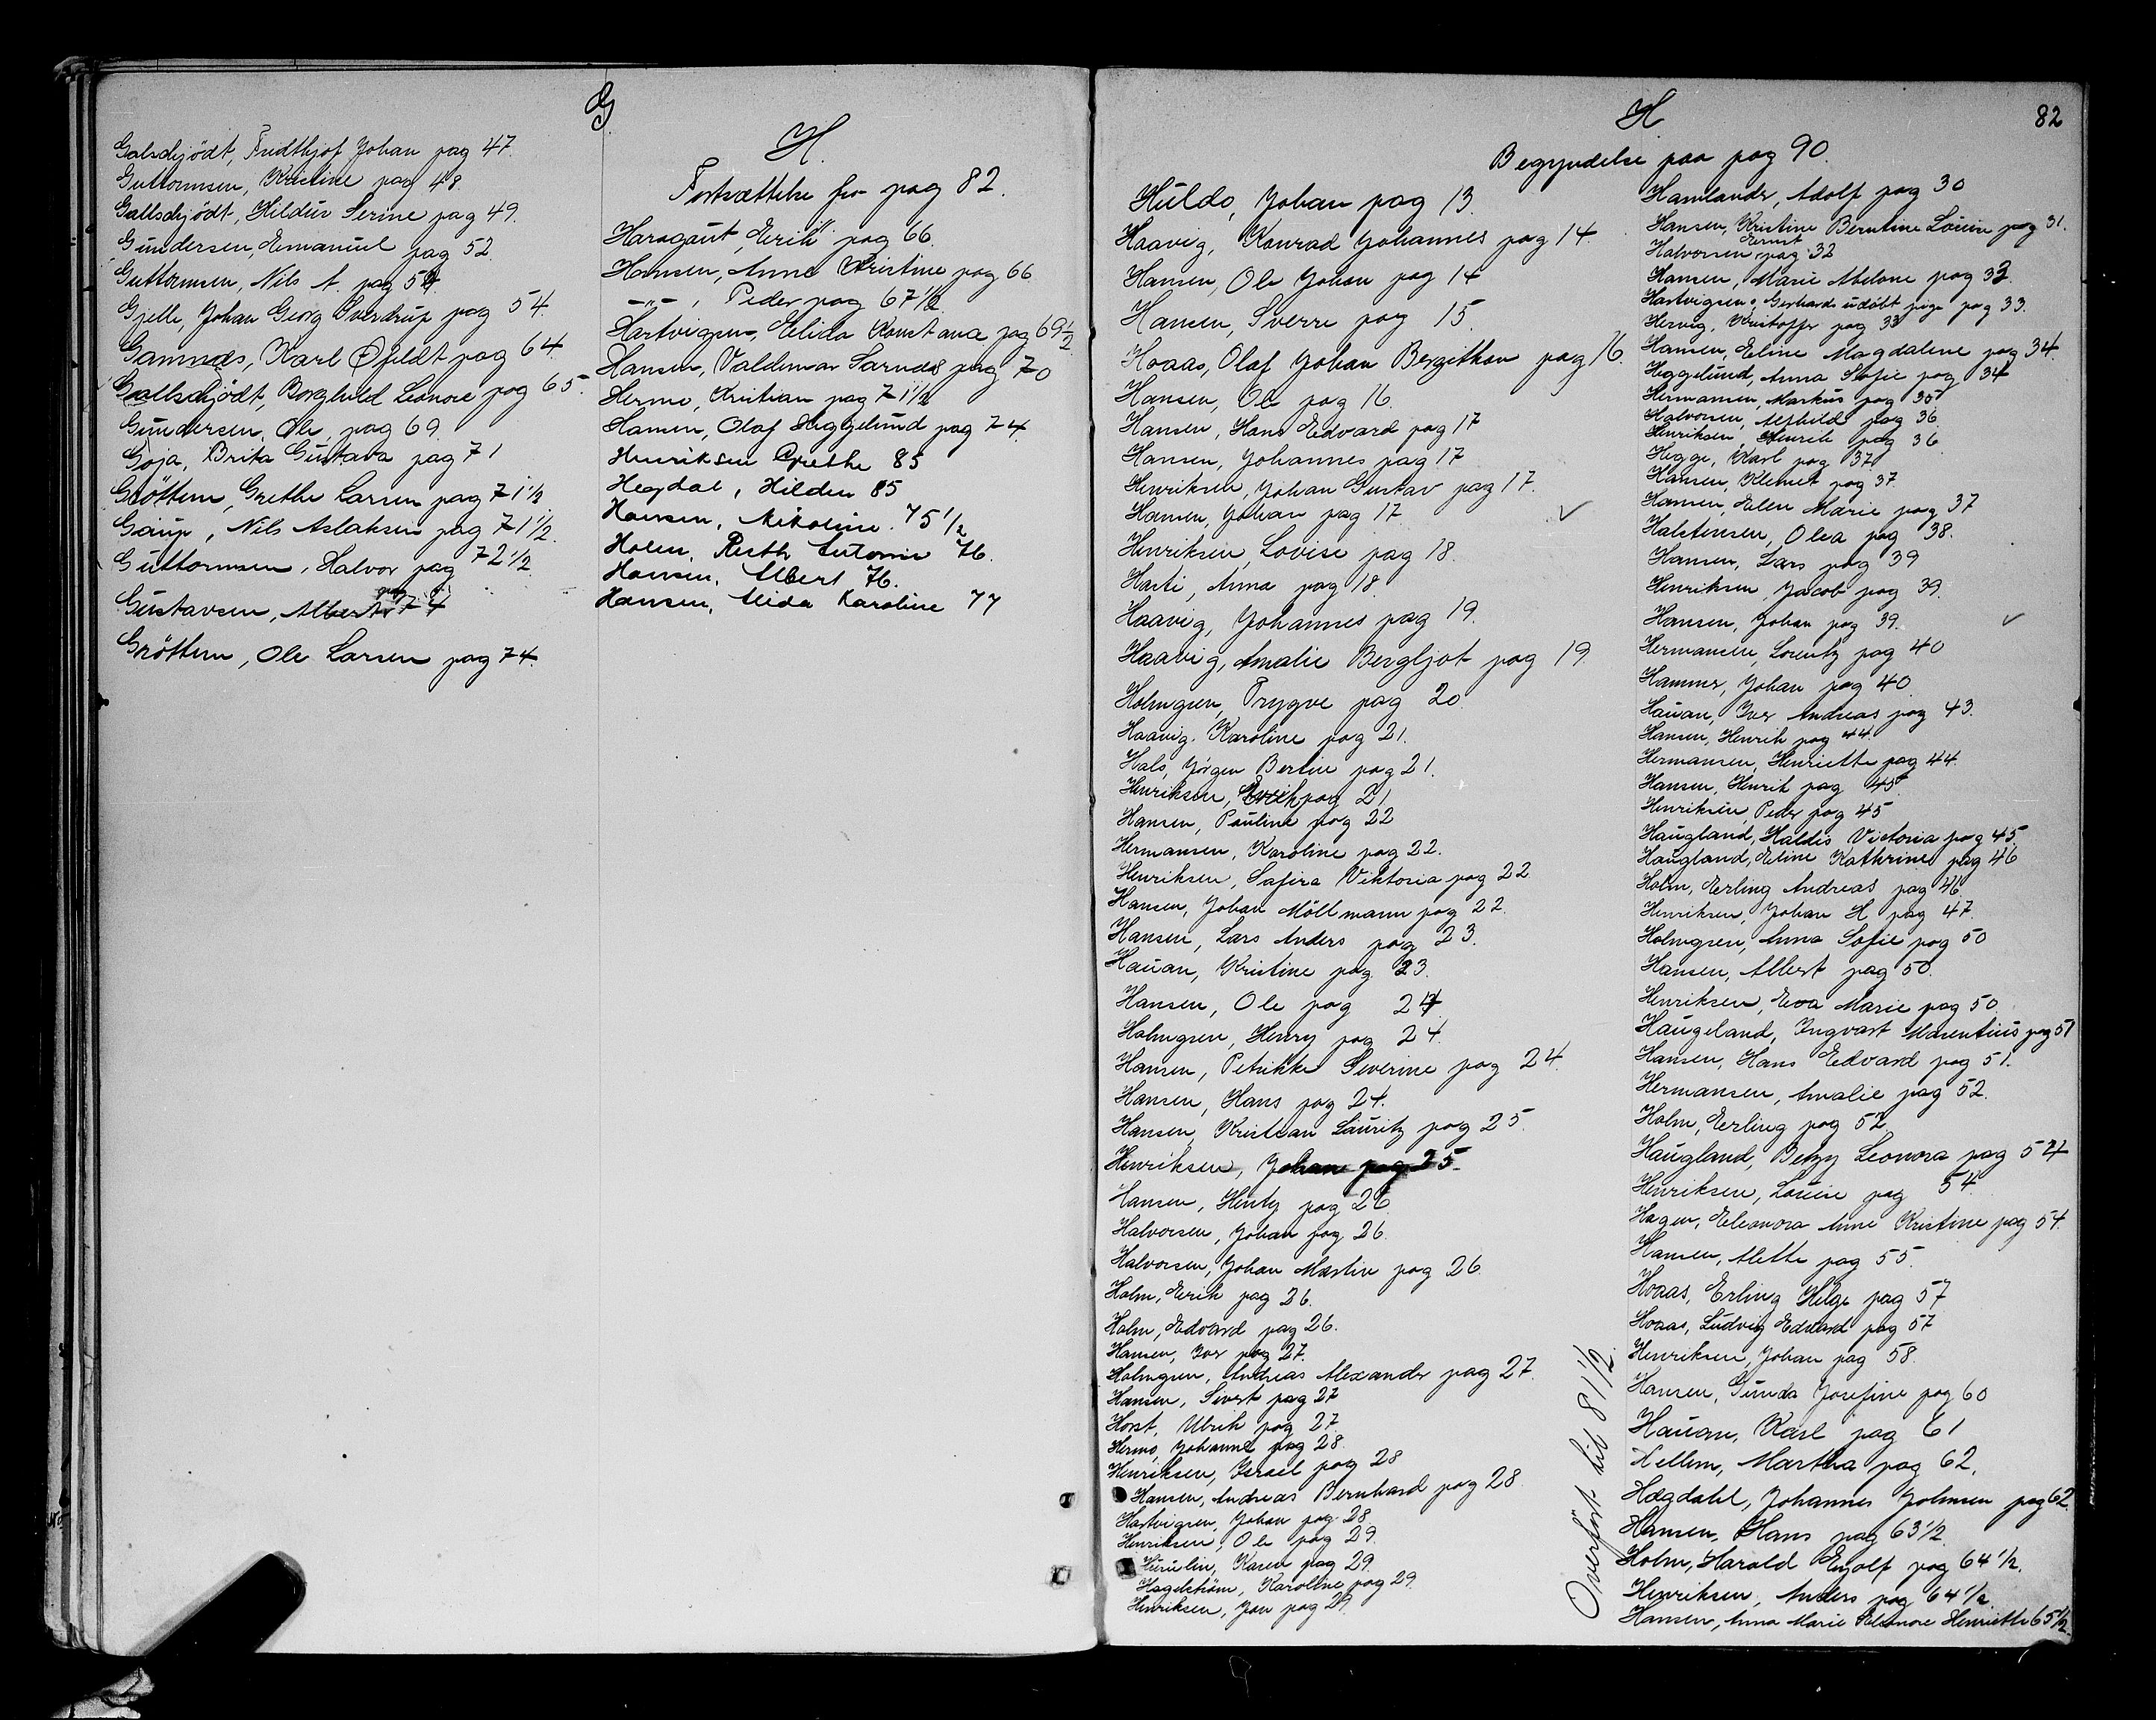 G
Galschjödt, Fridthjof Johan pag 47.
Guttormsen, Kristine pag 48
Gallschjödt, Hildur Serine pag 49.
Gundersen, Emanuel pag 52
Guttormsen, Nils A. pag 54.
Gjelle, Johan Georg Sverdrup pag 54.
Gamnæs, Karl Öfeldt pag 64.
Gallschjödt, Borghild Leonore pag 65.
Gundersen, Ole pag 69.
Goja, Brita Gustava pag 71
Gröttem, Grethe Larsen pag 71½
Gaup, Nils Aslaksen pag 71½.
Guttormsen, Halvor pag 72½.
Gustavsen, Albert pag 74
Gröttem, Ole Larsen pag 74.
H.
Fortsættelse fra pag 82.
Haragaut, Erik pag 66.
Hansen, Anna Kristine pag 66
-"- , Peder pag 67½
Hartvigsen, Elida Konstanse pag 69½
Hansen, Valdemar Sarnæs pag 70
Hermo, Kristian pag 71½
Hansen, Olaf Heggelund pag 74.
Henriksen Grethe 85
Hegdal, Hilden 85
Hansen, Nikoline. 75½
Holm, Ruth Antonie 76.
Hansen, Albert 76.
Hansen, Alida Karoline 77
H
82
Begyndelse paa pag 90.
Huldo, Johan pag 13.
Haavig, Konrad Johannes pag 14.
Hansen, Ole Johan pag 14
Hansen, Sverre pag 15.
Hoaas, Olaf Johan Bergithon pag 16.
Hansen, Ole pag 16.
Hansen, Hans Edvard pag 17
Hansen, Johannes pag 17
Henriksen, Johan Gustav pag 17.
Hansen, Johan pag 17 ✓
Henriksen, Lovise pag 18.
Hasti, Anna pag 18.
Haavig, Johannes pag 19.
Haavig, Amalie Bergljot pag 19.
Holmgren, Trygve pag 20.
Haavig, Karoline pag 21.
Hals, Jörgen Bertin pag 21.
Henriksen, Erik pag 21
Hansen, Pauline pag 22
Hermansen, Karoline pag 22.
Henriksen, Safira Viktoria pag 22
Hansen, Johan Möllmann pag 22.
Hansen, Lars Anders pag 23.
Hauan, Kristine pag 23.
Hansen, Ole pag 24
Holmgren, Henry pag 24.
Hansen, Petrikke Severine pag 24.
Hansen, Hans pag 24.
Hansen, Kristian Lauritz pag 25.
Henriksen, Johan pag 25.
Hansen, Hentz pag 26
Halvorsen, Johan pag 26.
Halvorsen, Johan Martin pag 26.
Holm, Erik pag 26.
Holm, Edvard pag 26.
Hansen, Iver pag 27.
Holmgren, Andreas Alexander pag 27.
Hansen, Sivert pag 27
Horst, Ulrik pag 27.
Hermo, Johanne pag 28.
Henriksen, Israel pag 28
Hansen, Andreas Bernhard pag 28
Hartvigsen, Johan pag 28.
Henriksen, Ole pag 29.
Huuslin, Karen pag 29.
Hagelström, Karoline pag 29.
Henriksen, Jon pag 29.
Overfört til 81½.
Hamlander, Adolf pag 30
Hansen, Kristine Berntine Louise pag 31.
Halvorsen, Ernst pag 32
Hansen, Marie Abelone pag 33.
Hartvigsen, Gerhards udöbt pige pag 33.
Hervig, Kristoffer pag 33
Hansen, Eline Magdalene pag 34.
Heggelund, Anna Sofie pag 34
Hermansen, Markus pag 35
Halvorsen, Alfhild pag 36
Henriksen, Henrik pag 36.
Hegge, Karl pag 37
Hansen, Klemet pag 37.
Hansen, Elen Marie pag 37
Halstensen, Olea pag 38.
Hansen, Lars pag 39
Henriksen, Jacob pag 39.
Hansen, Johan pag 39. ✓
Hermansen, Lorentz pag 40
Hammer, Johan pag 40
Hauan, Iver Andreas pag 43.
Hansen, Henrik pag 44.
Hermansen, Henriette pag 44.
Hansen, Henrik pag 45
Henriksen, Peder pag 45
Haugland, Haldis Victoria pag 45.
Haugland, Eline Kathrine pag 46
Holm, Erling Andreas pag 46.
Henriksen, Johan H pag 47.
Holmgren, Anna Sofie pag 50
Hansen, Albert pag 50.
Henriksen, Eva Marie pag 50.
Haugeland, Ingvart Marentius pag 51
Hansen, Hans Edvard pag 51.
Hermansen, Amalie pag 52.
Holm, Erling pag 52
Haugland, Betzy Leonora pag 54
Henriksen, Louise pag 54.
Hagen, Eleonora Anne Kristine pag 54.
Hansen, Mette pag 55.
Hoaas, Erling Helge pag 57
Hoaas, Ludvig Edvard pag 57
Henriksen, Johan pag 58.
Hansen, Gunda Josefine pag 60
Hauan, Karl pag 61
Hellem, Martha pag 62.
Hægdahl, Johannes Johnsen pag 62.
Hansen, Hans pag 63½.
Holm, Harald Engolf pag 64½.
Henriksen, Anders pag 64½.
Hansen, Anna Marie Eleonore Henriette 65½.